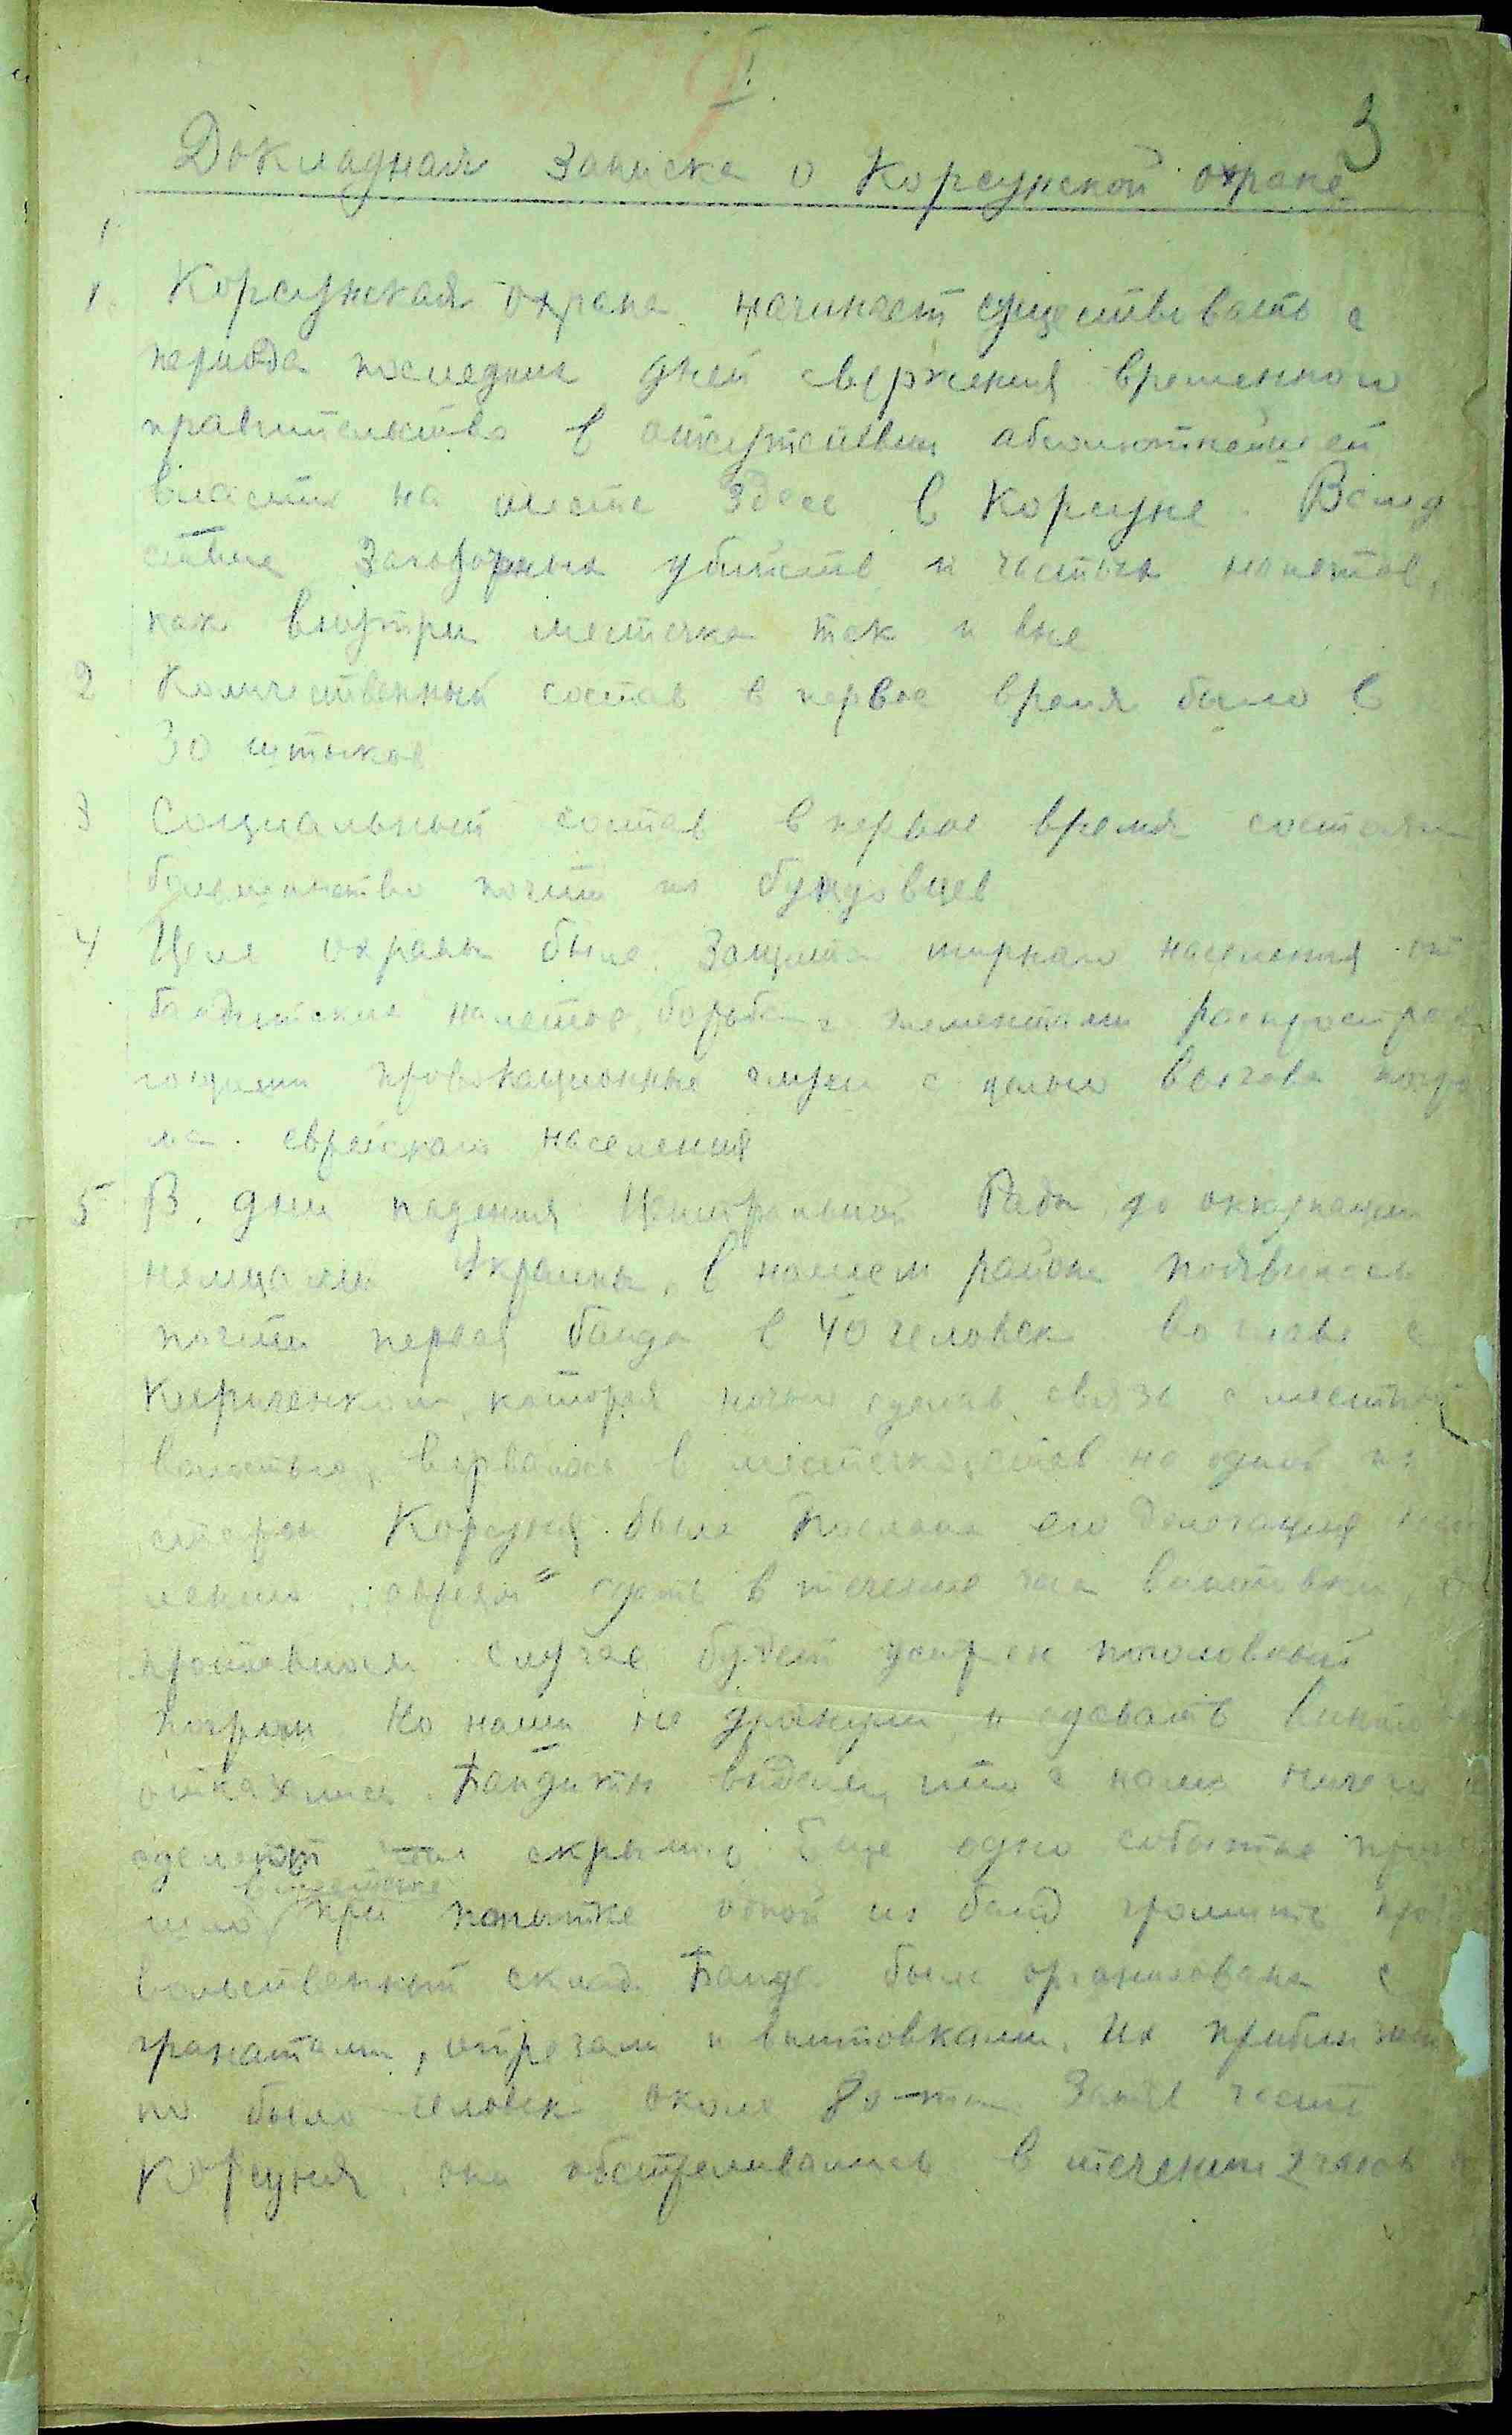 3
Докладная записка о Корсунской охране
1.
1. Корсунская охрана начинает существовать с
периода последних дней свержения временного
правительства в отсутствии абсолютнейшей
власти на месте здесь в Корсуне. Вслед
ствие заговорных убийств и частых налетов,
как внутри местечка так и вне
2 Количественный состав в первое время было в
30 штыков
3 Социальный состав в первое время состояли
большинство почти из бундовцев
4 Цель охраны была защита мирного населения от
бандитских налетов, борьба с элементами распростра
няющими провокационные слухи с целью вызова погро
ма еврейского населения
5 В дни падения Центральной Рады до оккупации
немцами Украины, в нашем районе появилась
почти первая банда в 40 человек во главе с
Кириченком, которая ночью сделав связь с местной
волостью, ворвалась в местечко, став на одной из
сторон Корсуня была послана его делегация
евреям" сдать в течение часа винтовки,
противном случае будет устроен поголовный
погром. Но наши не дрогнули и сдавать винтов
отказались. Бандиты видели, что с нами ничего
сделают скрылись. Еще одно событие прои
шло при попытке одной из банд громить про
вольственный склад. Банда была организована с
гранатами, отрезами и винтовками. Их приблизит
но было человек около 80-ти Заняв часть
Корсуня, они обстреливались в течении 2 часов